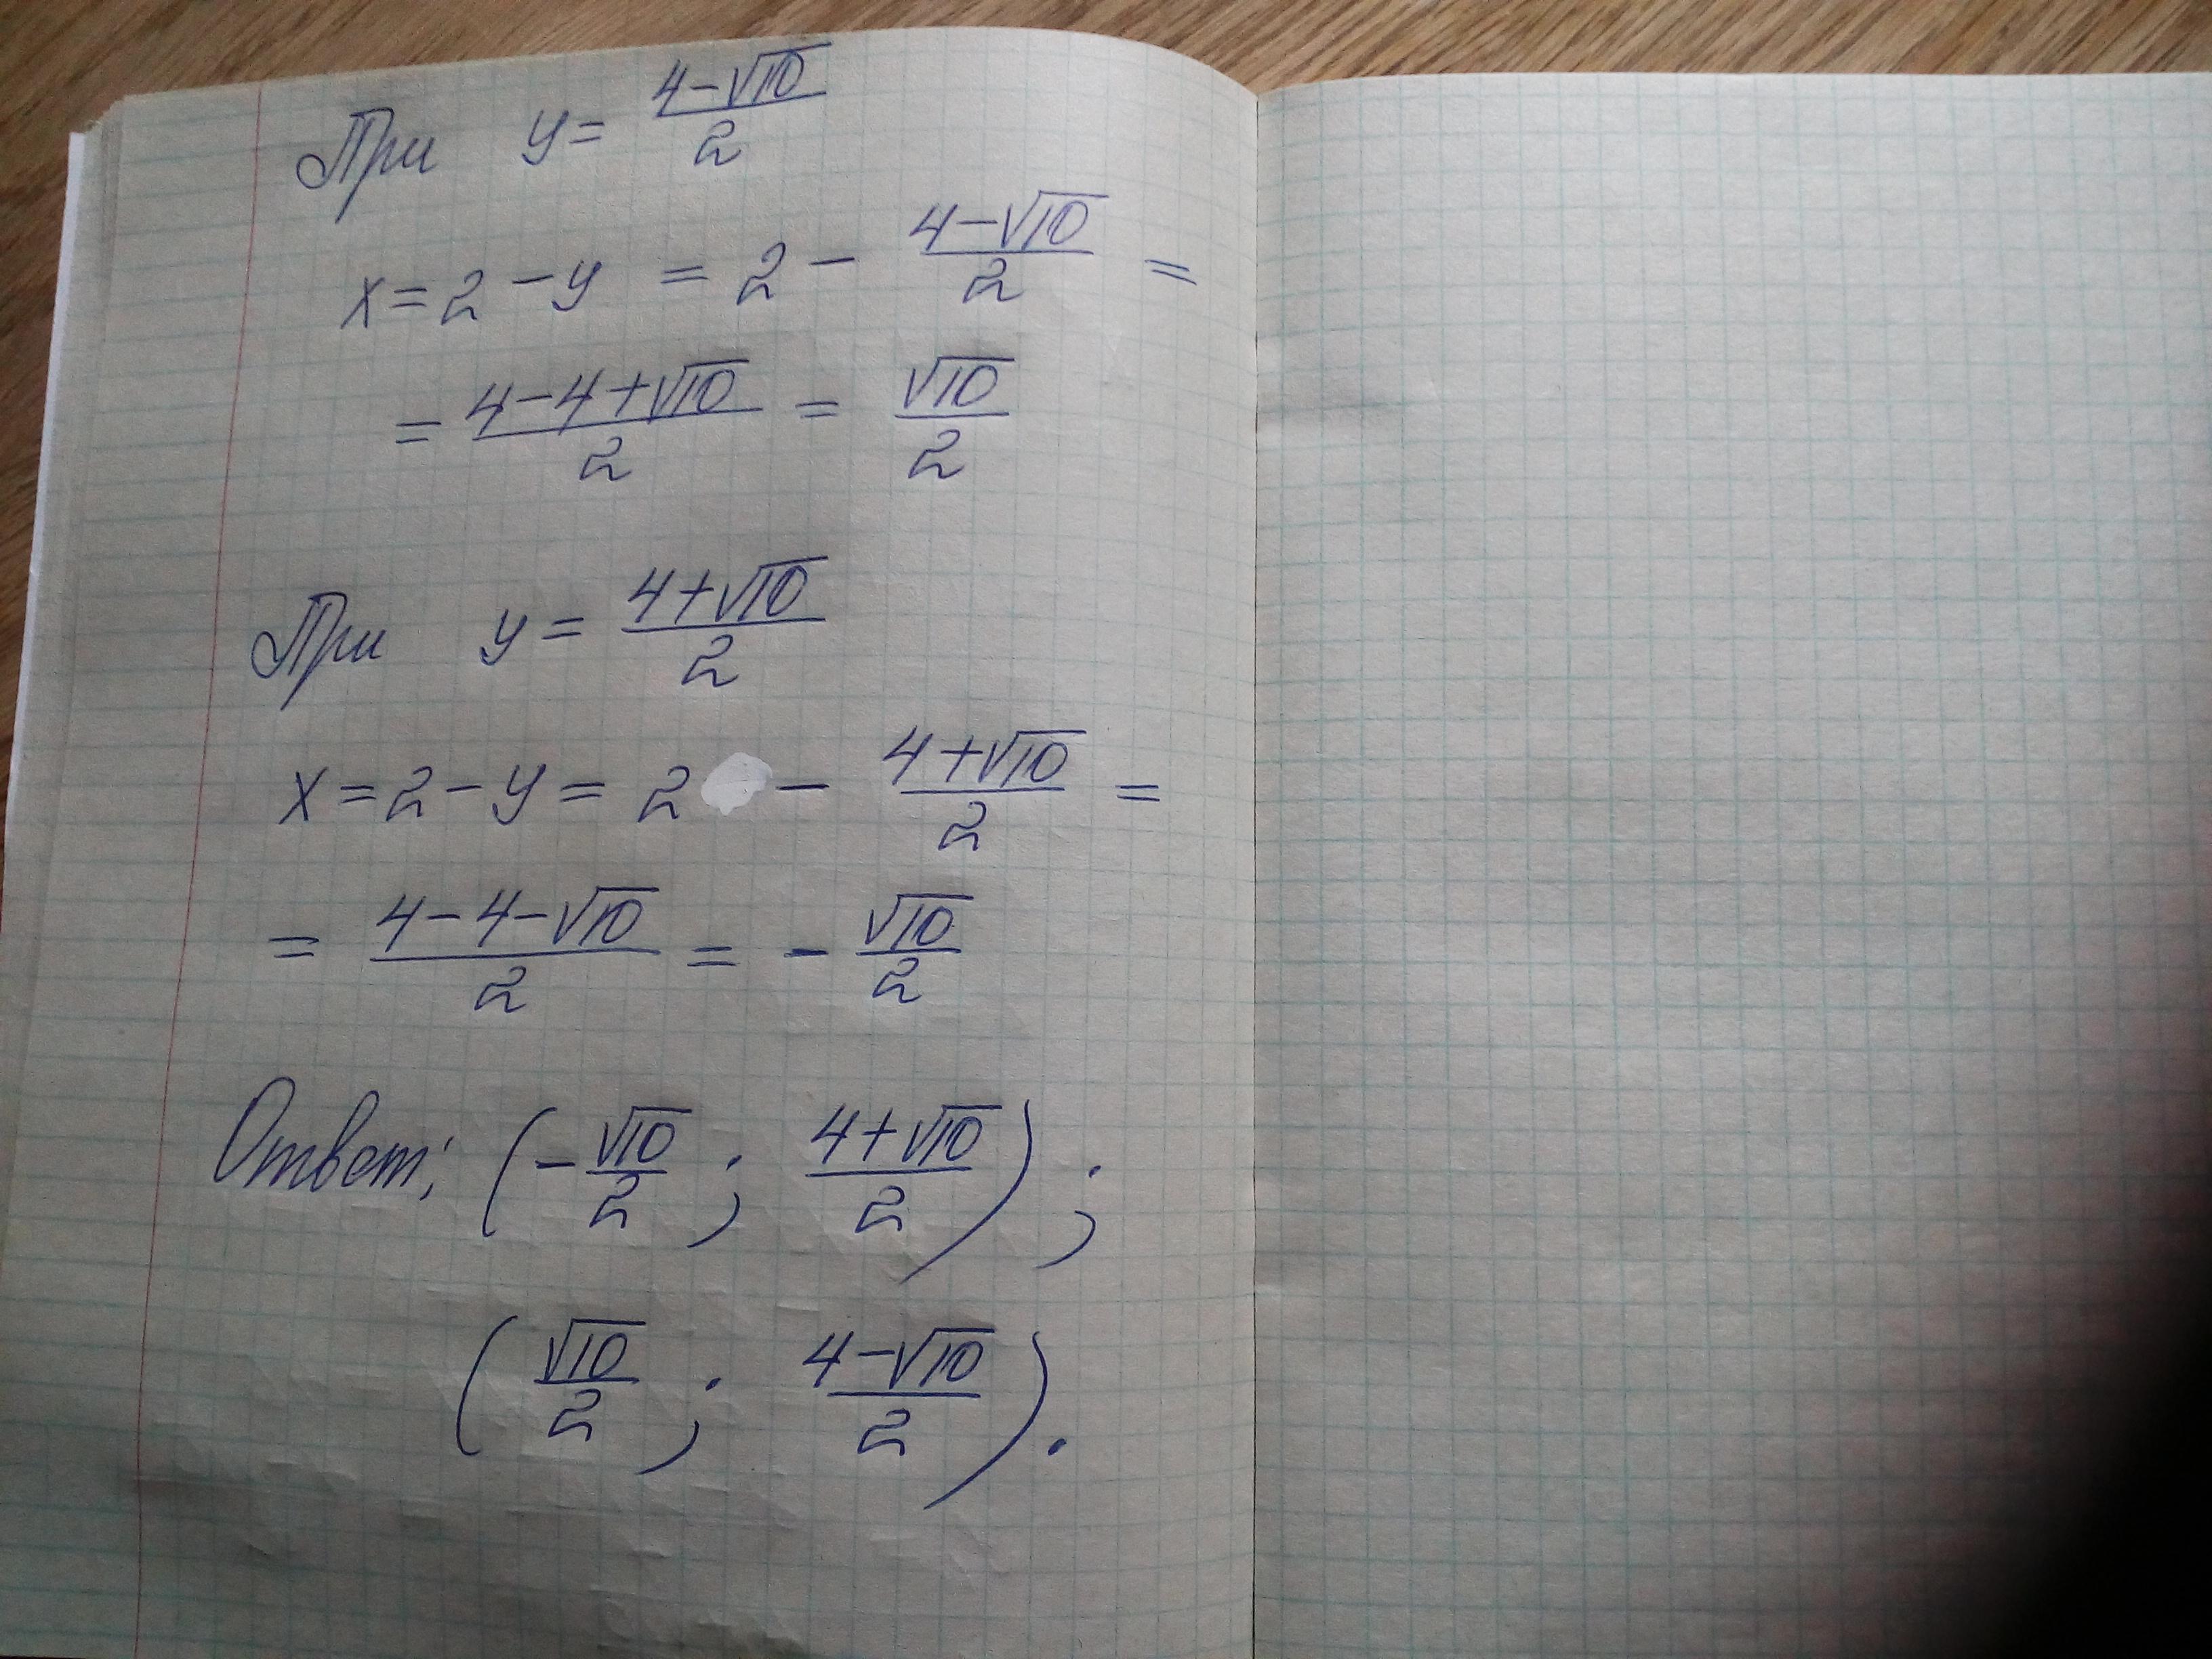 При y = (4-√10)/2
x = 2 - y = 2 - (4-√10)/2 =
= (4-4+√10)/2 = √10/2
При y = (4+√10)/2
x = 2 - y = 2 - (4+√10)/2 =
= (4-4-√10)/2 = - √10/2
Ответ: (-√10/2 ; (4+√10)/2) ;
(√10/2 ; (4-√10)/2).